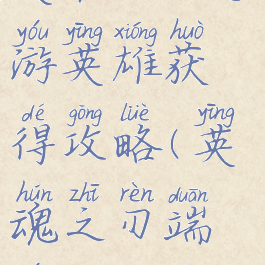 yóu yīng xióng huò
游英雄获
dé gōng lüè yīng
得攻略(英
hún zhī rèn duān
魂之刃端